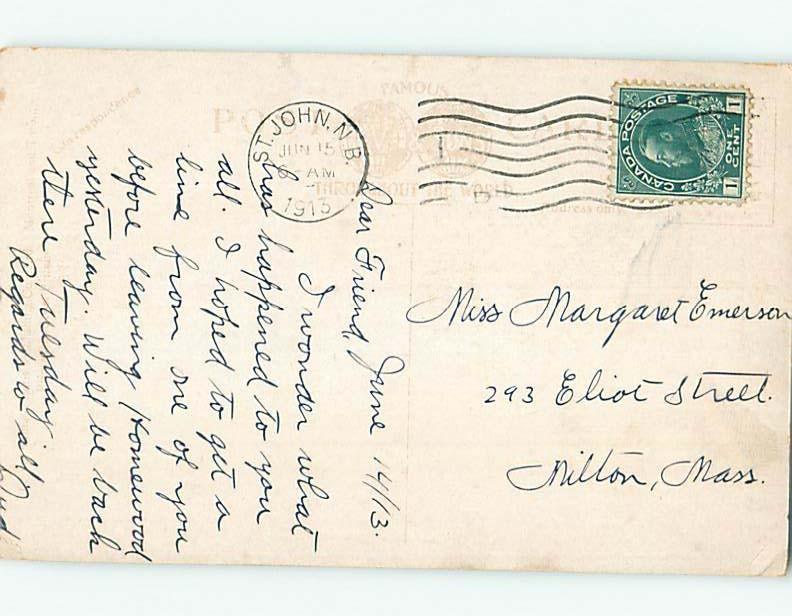 FAMOUS
POST CARD
THROUGHOUT THE WORLD
Correspondence
Address only
ST. JOHN, N.B.
JUN 15
AM
1913
CANADA POSTAGE
1 ONE CENT 1
Miss Margaret Emerson
293 Eliot Street.
Milton, Mass.
June 14/13.
Dear Friend,
I wonder what
has happened to you
all. I hoped to get a
line from one of you
before leaving Homewood
yesterday. Will be back
there Tuesday.
Regards to all